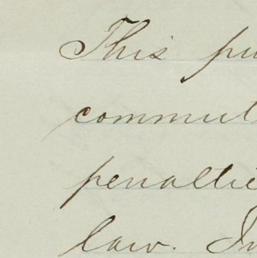 This pu
commut
penaltie
law. In